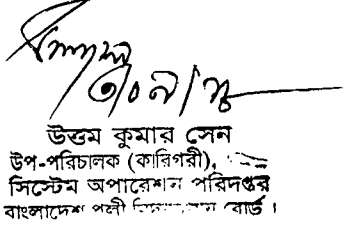 উত্তম কুমার সেন
উপ-পরিচালক (কারিগরী),
সিস্টেম অপারেশন পরিদপ্তর
বাংলাদেশ পল্লী বোর্ড।